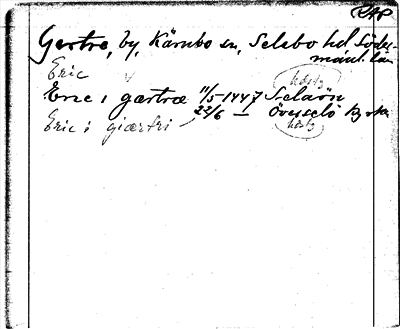 RAP
Gertre, by, Kärnbo sn, Selebo hd Söder-
manl. län
Eric
Eric i gærtræ 11/5 1447 Selaön
Eric i giærtri 22/6 — Överselö